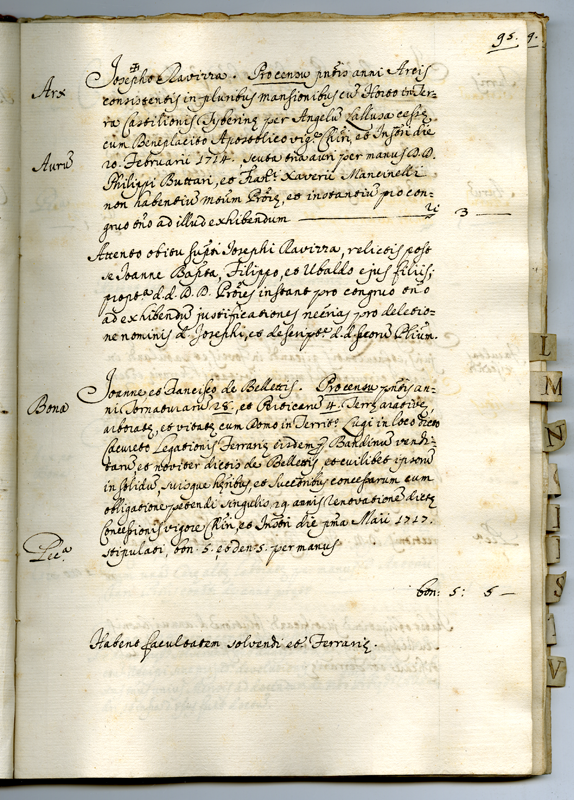 95. 9.
Arx
Josepho Ravizza. Pro censu pntis anni Arcis
consistentis in pluribus mansionibus cu Horto in ter-
ra Castilionis per Angelu
cum Beneplacito Apostolico vigre Chiri, et Instri die
Auru
20. Februarii 1714, scuta tria auri per manus D.D.
Philippi Buttari, et Xaverii Mancinelli
non habentiu et instantiu pro con-
gruo tno ad illud exhibendum
3 —
Attento obitu supti Josephi Ravizza, relictis post
se Joanne Bapta, Filippo, et Ubaldo ejus filiis;
propta d.d. D.D. Prores instant pro congruo tno
ad exhibendu justificationes necrias pro deletio-
ne nominis d. Josephi, et descriptre d.d. Filium.
Bona
Joanne et Francisco de Bellettis. Pro censu pntis an-
ni Tornaturaru 28. et Perticaru 4. Terre arative,
arborate, et vitate cum Domo in Territo Lugi in loco dicto
Sacureto Legationis Ferrarie eisdem p Bandinu vendi-
taru, et noviter dictis de Bellettis, et cuilibet ipsoru
in solidu, suisque hribus, et Succribus concessarum cum
obligatione petendi singulis 29 annis renovatione dicte
Concessionis vigore Chiri, et Instri die pma Maii 1717.
Pec.a
stipulati, bon. 5. et den 5. per manus
bon: 5: 5 —
Habent facultatem solvendi et Ferrarie.
L
M
N
S
V